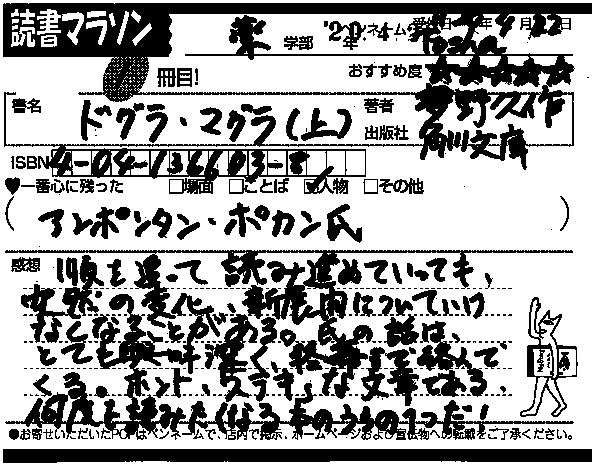 読書マラソン
薬 学部 '20.4 年 ペンネーム Yosha 受付日 9年 4月 22日
1 冊目! おすすめ度 ☆☆☆☆☆
書名 ドグラ・マグラ(上) 著者 夢野久作
出版社 角川文庫
ISBN 4-04-136603-8
♥一番心に残った □場面 □ことば ☑人物 □その他
(アンポンタン・ポカン氏)
感想 順を追って読み進めていっても、
突然の変化、新展開についていけ
なくなることがある。氏の話は、
とても興味深く、終盤まで絡んで
くる。ホント、ステキ、な文章である。
何度も読みたくなる本のうちの1つだ!
●お寄せいただいたPOPはペンネームで、店内で掲示、ホームページおよび宣伝物への転載をご了承ください。